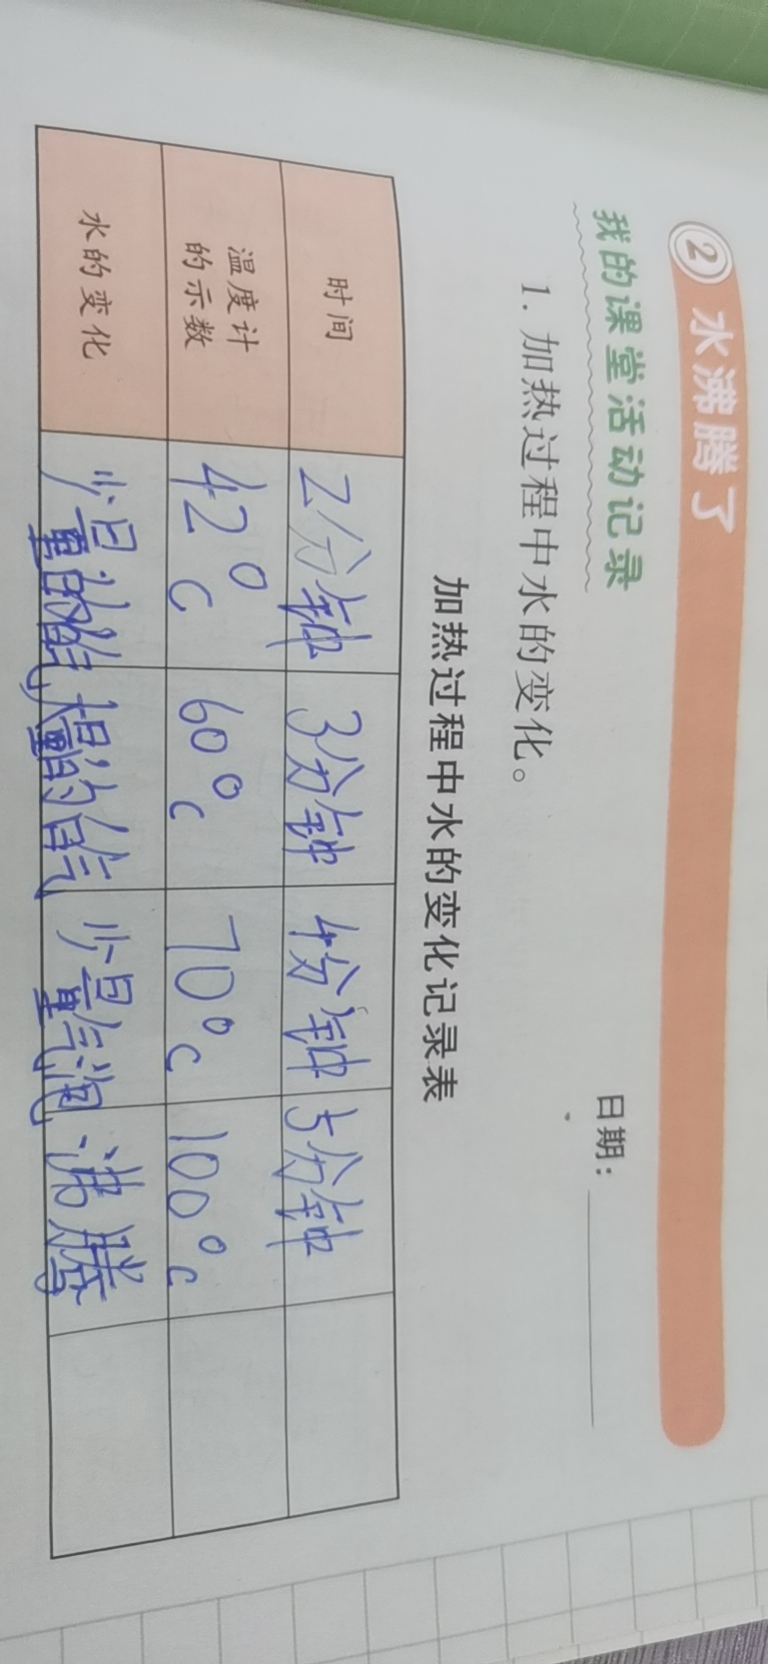 ② 水沸腾了
我的课堂活动记录
日期：
1. 加热过程中水的变化。
加热过程中水的变化记录表
时间 2分钟 3分钟 4分钟 5分钟
温度计的示数 42°C 60°C 70°C 100°C
水的变化 少量的白气 大量的白气 少量气泡 沸腾